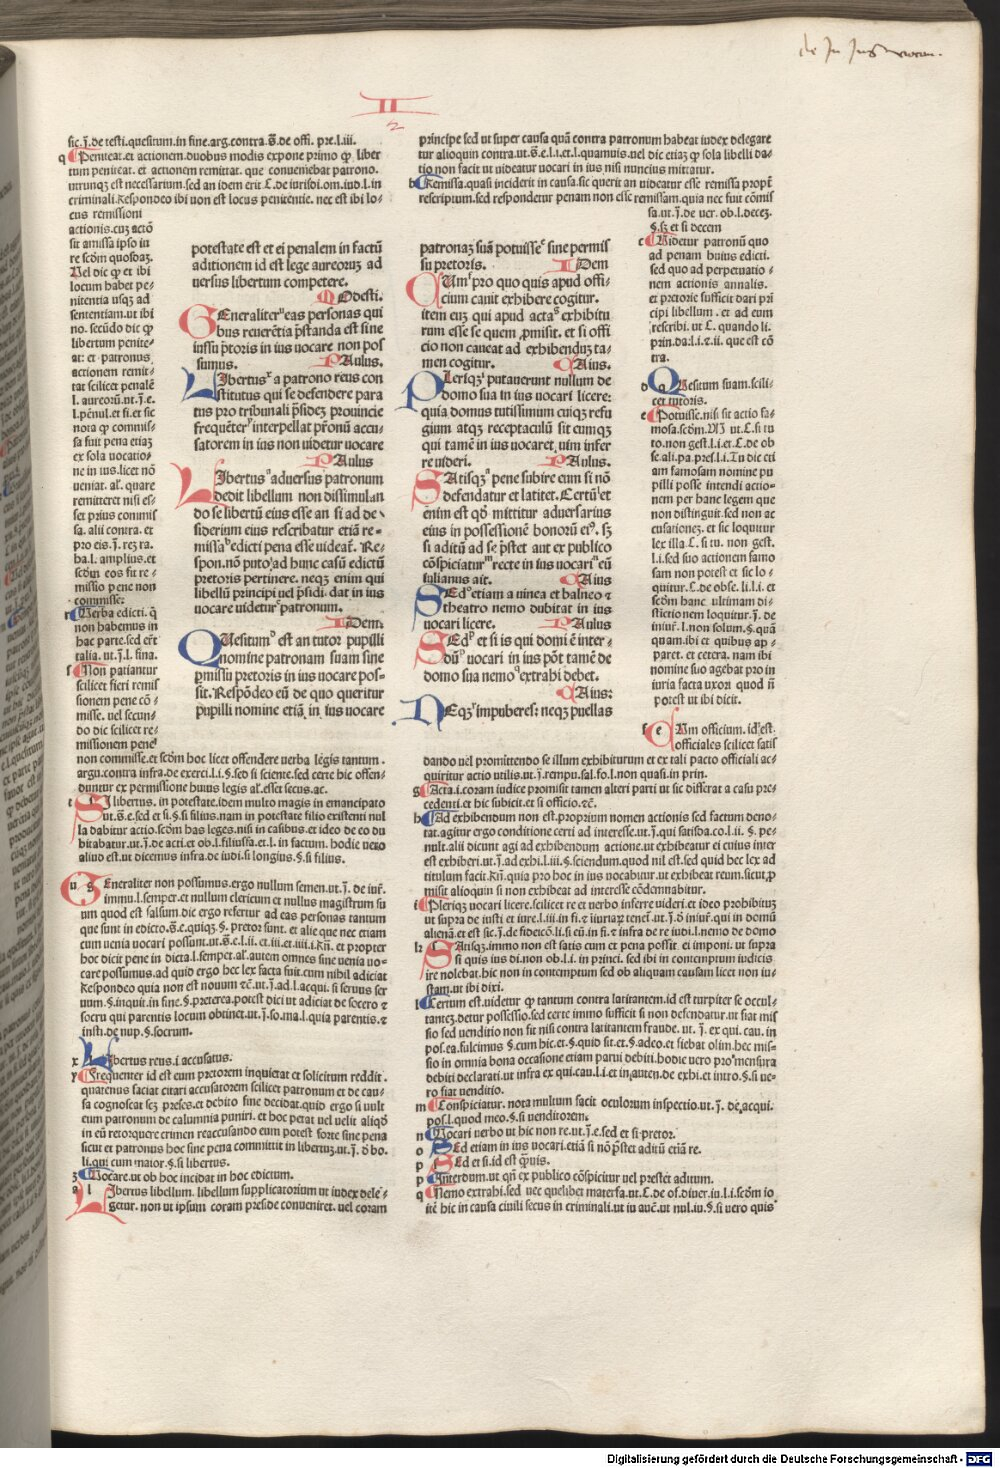 de In Jus vocan.
II
2
sic.ꝭ.de testi.quesitum.in fine.arg.contra.ꝭ̄.de offi. pre.l.iii.
q Peniteat.et actionem.duobus modis expone primo ꝙ liber
tum peniteat.et actionem remittat. que conueniebat patrono.
utrunqꝫ est necessarium.sed an idem erit C.de iurisdi.om.iud.l.in
criminali.Respondeo ibi non est locus penitentie. nec est ibi lo-
cus remissioni
actionis.cuꝫ actō
sit amissa ipso iu
re scd̄m quosdaꝫ.
Vel dic ꝙ et ibi
locum habet pe-
nitentia usqꝫ ad
sententiam.ut ibi
no. secūdo dic ꝙ
libertum penite-
at: et patronus
actionem remit-
tat scilicet penalē
l. aureorū.ut.ꝭ.e.
l.pēnul.et si.et sic
nota ꝙ commis-
sa fuit pena etiaꝫ
ex sola uocatio-
ne in ius.licet nō
ueniat. al'. quare
remitteret nisi es-
set prius commis
sa. alii contra. et
pro eis.ꝭ. reꝫ ra.
ha.l. amplius.et
scd̄m eos fit re-
missio pene non
commisse:
r Verba edicti. q̄
non habemus in
hac parte.sed erāt
talia. ut.ꝭ.l. fina.
s Non patiantur
scilicet fieri remis
sionem pene cō-
misse. uel secun-
do dic scilicet re-
missionem pene
non commisse.et scd̄m hoc licet offendere uerba legis tantum.
argu.contra infra.de exerci.l.i.§.sed si sciente.sed certe hic offen-
duntur ex permissione huius legis al'.esset secus.ac.
t SI libertus. in potestate.idem multo magis in emancipato
ut.ꝭ̄.e.sed et si.§.si filius.nam in potestate filio existenti nul
la dabitur actio.scd̄m has leges.nisi in casibus.et ideo de eo du
bitabatur.ut.ꝭ.de acti.et ob.l.filiusfa.et.l. in factum. hodie uero
aliud est.ut dicemus infra.de iudi.si longius.§.si filius.
u GEneraliter non possumus.ergo nullum semen.ut.ꝭ. de iur̄.
immu.l.semper.et nullum clericum et nullus magistrum su
um quod est falsum.dic ergo refertur ad eas personas tantum
que sunt in edicto.ꝭ̄.e.quiqꝫ.§. pretor.sunt. et alie que nec etiam
cum uenia uocari possunt.ut.ꝭ̄.e.l.ii. et.iii.et.iiii.i.Rn̄. et propter
hoc dicit pene in dicta.l.semper.al'.autem omnes sine uenia uo-
care possumus.ad quid ergo hec lex facta fuit.cum nihil adiciat
Respondeo quia non est nouum ꝛc̄.ut.ꝭ.ad.l.acqui. si seruus ser
uum.§.inquit.in fine.§.preterea.potest dici ut adiciat de socero ꝛ
socru qui parentis locum obtinet.ut.ꝭ.so.ma.l.quia parentis.ꝛ
insti.de nup.§.socrum.
x LIbertus reus.i accusatus.
y Frequenter id est cum pretorem inquietat et solicitum reddit.
quatenus faciat citari accusatorem scilicet patronum et de cau-
sa cognoscat scꝫ preses.et debito fine decidat.quid ergo si uult
eum patronum de calumnia puniri. et hoc petat uel uelit aliqd̄
in eū retorquere crimen reaccusando eum potest forte sine pena
sicut et patronus hoc sine pena committit in libertuꝫ.ut.ꝭ. d̄ bo.
li.qui cum maior.§.si libertus.
z Vocare.ut ob hoc incidat in hoc edictum.
a LIbertus libellum. libellum supplicatorium ut iudex dele-
getur. non ut ipsum coram preside conueniret. uel coram
potestate est et ei penalem in factū
aditionem id est lege aureoruꝫ ad
uersus libertum competere.
MOdesti.
GEneraliter eas personas qui
bus reuerētia p̄standa est sine
iussu p̄toris in ius uocare non pos
sumus. PAulus.
LIbertus a patrono reus con
stitutus qui se defendere para
tus pro tribunali p̄sideꝫ prouincie
frequēter interpellat pr̄onū accu-
satorem in ius non uidetur uocare
PAulus
LIbertus aduersus patronum
dedit libellum non dissimulan
do se libertū eius esse an si ad de-
siderium eius rescribatur etiā re-
missa edicti pena esse uideat̄. Re-
spon.nō puto ad hunc casū edictū
pretoris pertinere. neqꝫ enim qui
libellū principi uel p̄sidi. dat in ius
uocare uidetur patronum.
IDem.
QUesitum est an tutor pupilli
nomine patronam suam sine
p̱missu pretoris in ius uocare pos-
sit. Respōdeo eū de quo queritur
pupilli nomine etiā in ius uocare
principe sed ut super causa quā contra patronum habeat iudex delegare
tur alioquin contra.ut.ꝭ̄.e.l.i.et.l.quamuis.uel dic etiaꝫ ꝙ sola libelli da-
tio non facit ut uideatur uocari in ius nisi nuncius mittatur.
b Remissa.quasi inciderit in causa.sic querit an uideatur esse remissa propt̄
rescriptum.sed respondetur penam non esse remissam.quia nec fuit cōmis
sa.ut.ꝭ.de uer. ob.l.deceꝫ.
§.sꝫ et si decem
c Videtur patronū quo
ad penam huius edicti.
sed quo ad perpetuatio-
nem actionis annalis.
et pretorie sufficit dari pri
cipi libellum. et ad eum
rescribi. ut C. quando li.
prin.da.l.i.ꝛ.ii. que est cō
tra.
d QUesitum suam.scili-
cet tutoris.
e Potuisse.nisi sit actio fa-
mosa.scd̄m.M ut.C.si tu
to.non gest.l.i.et.C.de ob
se.ali.pa.pres.l.i.Tu dic eti
am famosam nomine pu
pilli posse intendi actio-
nem per hanc legem que
non distinguit.sed non ac
cusationeꝫ. et sic loquitur
lex illa.C.si tu. non gest.
l.i.sed suo actionem famo
sam non potest et sic lo-
quitur.C.de obse. li.l.i. et
scd̄m hanc ultimam di-
stinctionem loquitur.ꝭ. de
iniur̄.l.non solum.§.quā
quam.ibi et quibus ap-
paret. et cetera. nam ibi
nomine suo agebat pro in
iuria facta uxori quod n̄
potest ut ibi dicit.
f CUm officium. id est.
officiales scilicet satis
dando uel promittendo se illum exhibiturum et ex tali pacto officiali ac-
quiritur actio utilis.ut.ꝭ.rem.pu.sal.fo.l.non quasi.in prin.
g Acta.i.coram iudice promisit tamen alteri parti ut sic differat a casu pre-
cedenti.et hic subicit.et si officio.ꝛc̄.
h Ad exhibendum non est.proprium nomen actionis sed factum deno-
tat.agitur ergo conditione certi ad interesse.ut.ꝭ.qui satisda.co.l.ii. §. pe-
nult.alii dicunt agi ad exhibendum actione.ut exhibeatur ei cuius inter
est exhiberi.ut.ꝭ.ad exhi.l.iii.§.sciendum.quod nil est.sed quid hec lex ad
titulum facit.Rn̄. quia pro hoc in ius uocabitur.ut exhibeat reum.sicut.p̱
misit alioquin si non exhibeat ad interesse cōdemnabitur.
i Pleriqꝫ uocari licere.scilicet re et uerbo inferre uideri.et ideo prohibituꝫ
ut supra de iusti et iure.l.iii.in fi.ꝛ iiuriaꝝ tenet̄.ut.ꝭ. d̄ iniur̄.qui in domū
alienā.et est sic.ꝭ.de fideicō.li.si eū.in fi.ꝛ infra de re iudi.l.nemo de domo
k SAtisqꝫ.immo non est satis cum et pena possit. ei imponi. ut supra
si quis ius di.non ob.l.i. in princi. sed ibi in contemptum iudicis
ire nolebat.hic non in contemptum sed ob aliquam causam licet non iu-
stam.ut ibi dixi.
l Certum est.uidetur ꝙ tantum contra latitantem.id est turpiter se occul-
tanteꝫ.detur possessio.sed certe immo sufficit si non defendatur.ut fiat mis
sio sed uenditio non fit nisi contra latitantem fraude. ut. ꝭ. ex qui. cau. in
pos.ea.fulcimus §.cum hic.et.§.quid sit.et.§.adeo.et fiebat olim.hec mis-
sio in omnia bona occasione etiam parui debiti.hodie uero pro mensura
debiti declarati.ut infra ex qui.cau.l.i.et in auten.de exhi.et intro.§.si ue-
ro fiat uenditio.
m Conspiciatur. nota multum facit oculorum inspectio.ut.ꝭ. de acqui.
pos.l.quod meo.§.si uenditorem.
n Vocari uerbo ut hic non re.ut.ꝭ.e.sed et si pretor.
o SEd etiam in ius uocari.etiā si nō p̄stet aditū etiā re.
p SEd et si.id est q̄uis.
p Interdum.ut qn̄ ex publico cōspicitur uel prestet aditum.
q Nemo extrahi.sed nec quelibet materfa.ut C.de of.diuer.iu.l.i.scd̄m io
itē hic in causa ciuili secus in criminali.ut iu auct̄.ut nul.iu.§.si uero quis
patronaꝫ suā potuisse sine permis
su pretoris. IDem
CUm pro quo quis apud offi-
cium cauit exhibere cogitur.
item euꝫ qui apud acta exhibitu
rum esse se quem p̱misit. et si offi
cio non caueat ad exhibenduꝫ ta-
men cogitur. GAius.
PLeriqꝫ putauerunt nullum de
domo sua in ius uocari licere:
quia domus tutissimum cuiqꝫ refu
gium atqꝫ receptaculū sit eumqꝫ
qui tamē in ius uocaret uim infer
re uideri. PAulus.
SAtisqꝫ pene subire eum si nō
defendatur et latitet.Certū et
enim est qd̄ mittitur aduersarius
eius in possessionē bonorū ei9. sꝫ
si aditū ad se p̄stet aut ex publico
cōspiciatur recte in ius uocari eū
iulianus ait. GAius
SEd etiam a uinea et balneo ꝛ
theatro nemo dubitat in ius
uocari licere. PAulus
SEd et si is qui domi ē inter-
dū uocari in ius pōt tamē de
domo sua nemo extrahi debet.
GAius:
NEqꝫ impuberes: neqꝫ puellas
Digitalisierung gefördert durch die Deutsche Forschungsgemeinschaft - DFG